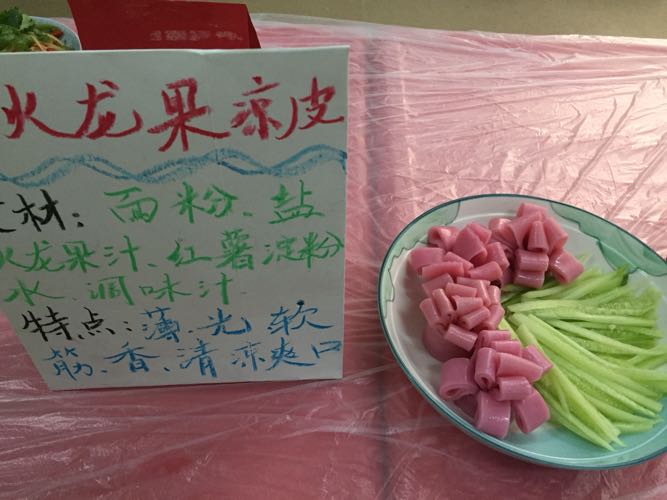 火龙果凉皮
材:面粉、盐
火龙果汁、红薯淀粉
水、调味汁
特点:薄、光、软
筋、香、清凉爽口